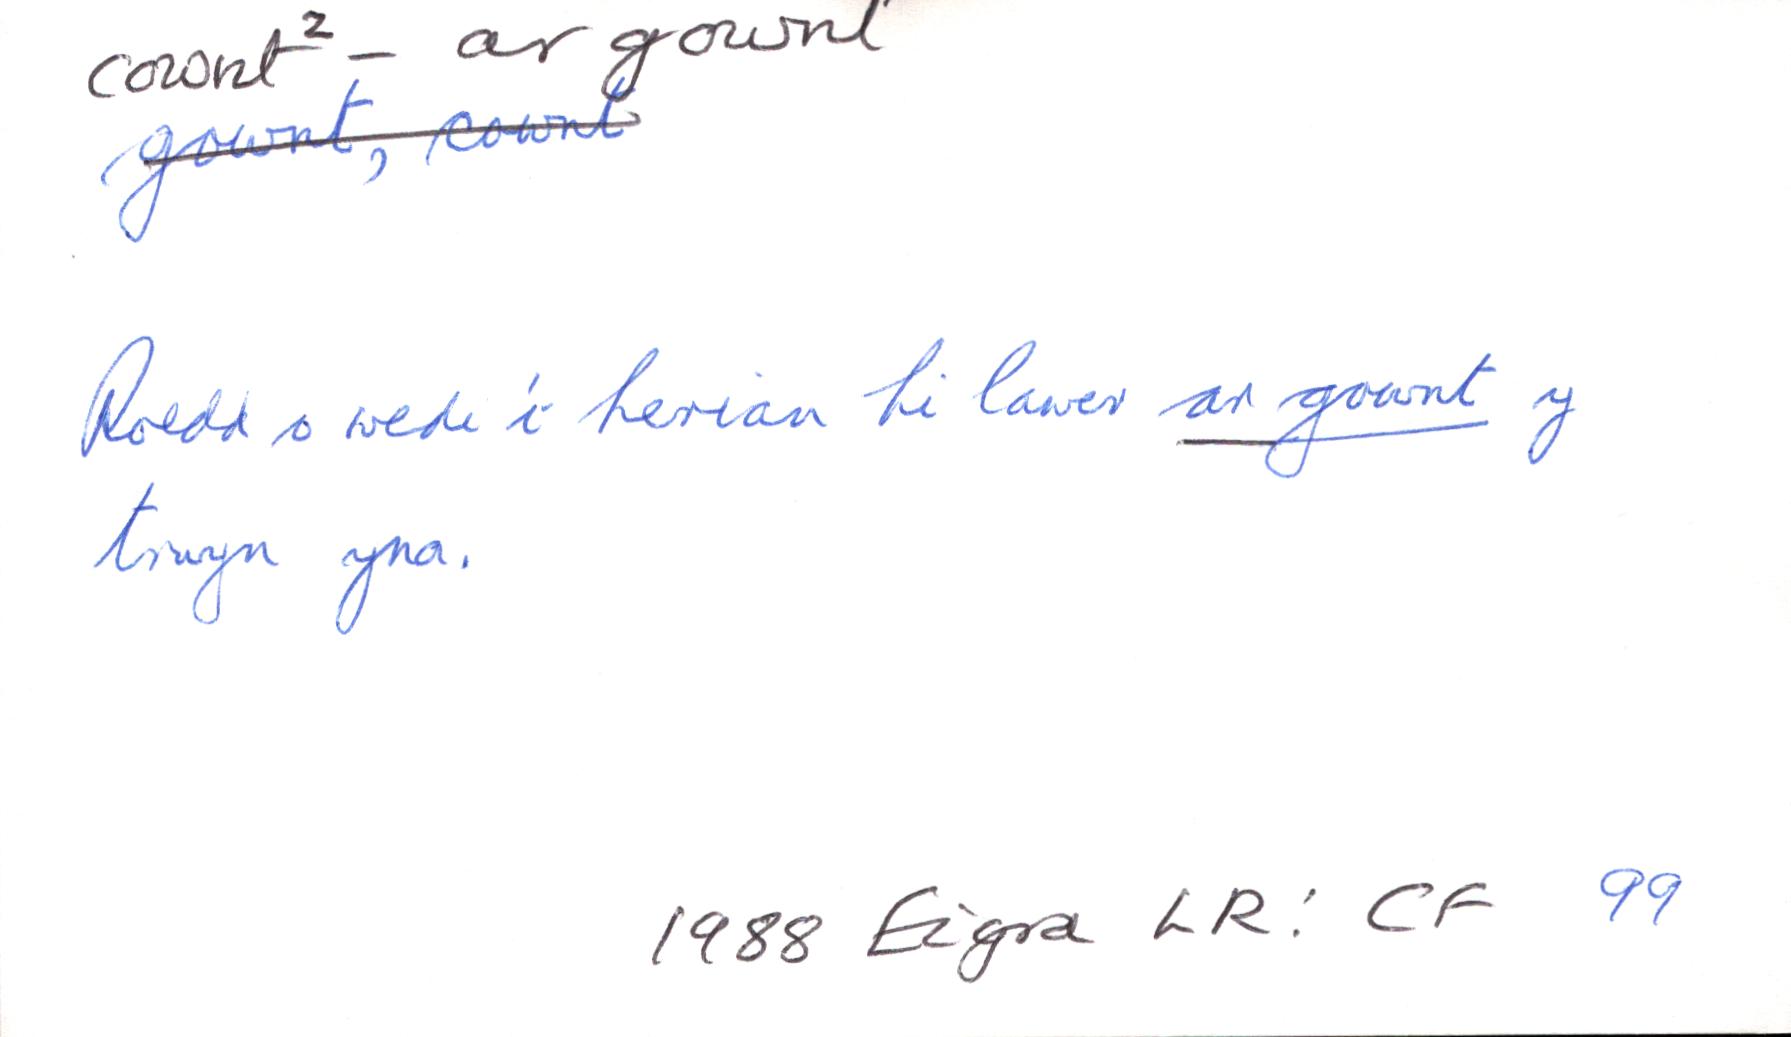 cownt² – ar gownt
gownt, cownt
Roedd o wedi i herian hi lawer ar gownt y
trwyn yna.
1988 Eigra LR: CF 99